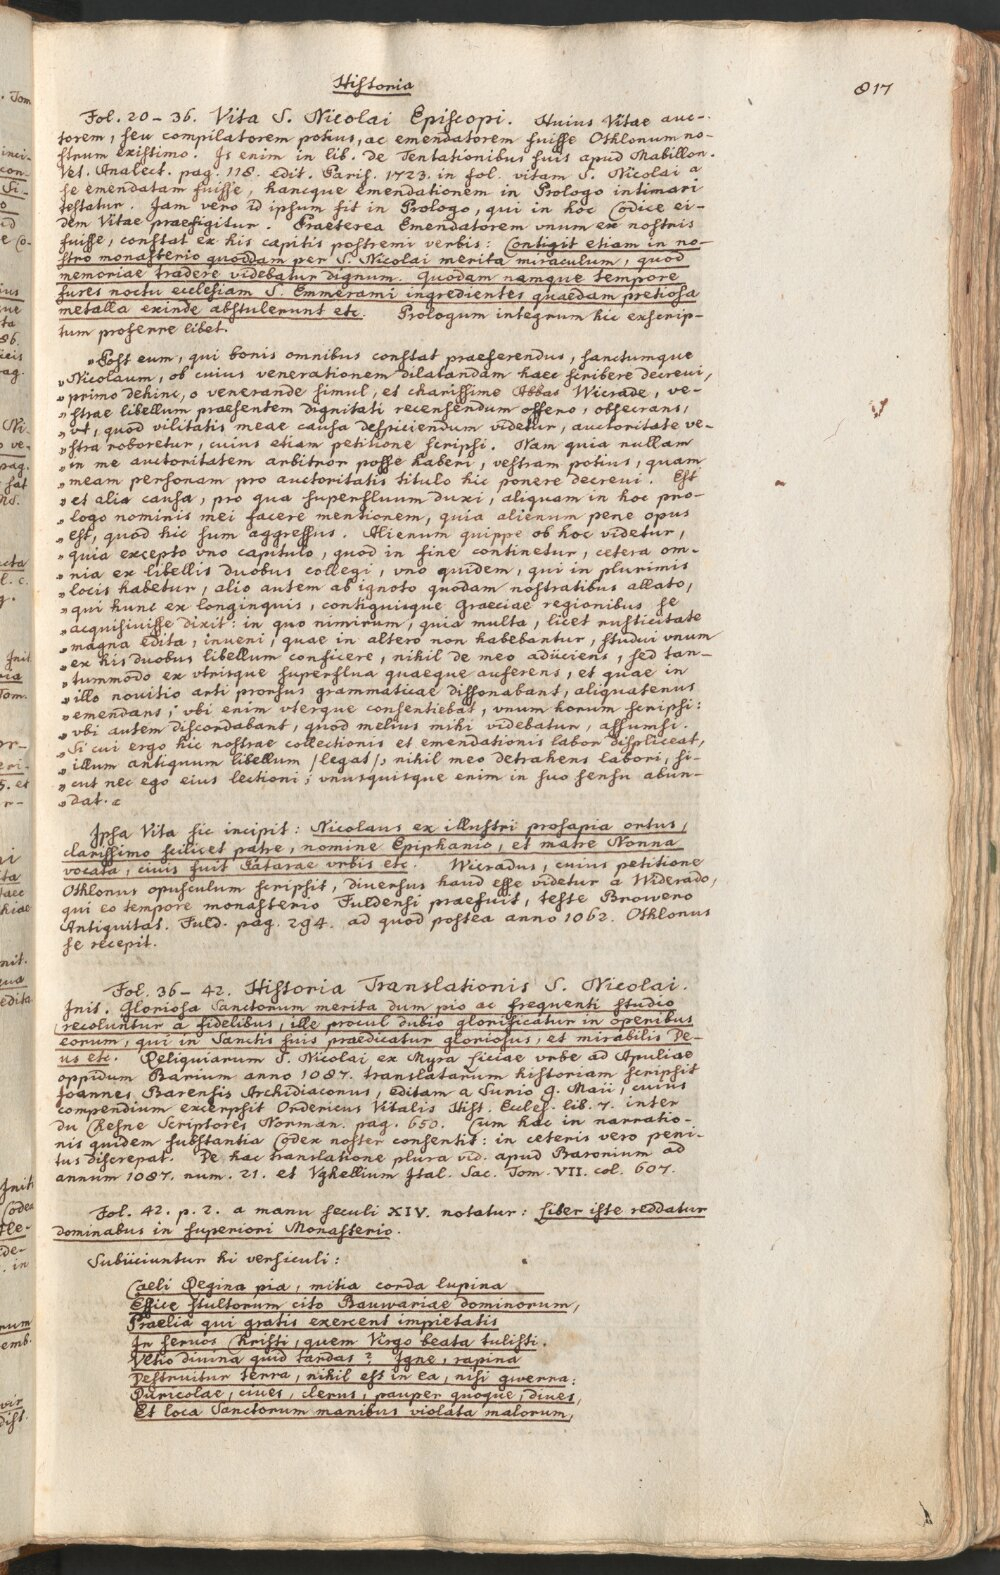 Historia
817
Fol. 20 – 36. Vita S. Nicolai Episcopi. Huius Vitae auc-
torem, seu compilatorem potius, ac emendatorem fuisse Othlonum no-
strum existimo. Is enim in lib. de Tentationibus suis apud Mabillon.
Vet. Analect. pag. 118. Edit. Paris. 1723. in fol. vitam S. Nicolai a
se emendatam fuisse, hancque emendationem in Prologo intimari
testatur. Jam vero id ipsum fit in Prologo, qui in hoc Codice ei-
dem Vitae praefigitur. Praeterea Emendatorem vnum ex nostris
fuisse, constat ex his capitis postremi verbis: Contigit etiam in no-
stro monasterio quoddam per S. Nicolai merita miraculum, quod
memoriae tradere videbatur dignum. Quodam namque tempore
fures noctu ecclesiam S. Emmerami ingredientes quaedam pretiosa
metalla exinde abstulerunt etc. Prologum integrum hic exscrip-
tum proferre libet.
„ Post eum, qui bonis omnibus constat praeferendus, sanctumque
„ Nicolaum, ob cuius venerationem dilatandam haec scribere decreui,
„ primo dehinc, o venerande simul, et charissime Abbas Wicrade, ve-
„ strae libellum praesentem dignitati recensendum offero, obsecrans,
„ vt, quod vilitatis meae causa despiciendum videtur, auctoritate ve-
„ stra roboretur, cuius etiam petitione scripsi. Nam quia nullam
„ in me auctoritatem arbitror posse haberi, vestram potius, quam
„ meam personam pro auctoritatis titulo hic ponere decreui. Est
„ et alia causa, pro qua superfluum duxi, aliquam in hoc pro-
„ logo nominis mei facere mentionem, quia alienum pene opus
„ est, quod hic sum aggressus. Alienum quippe ob hoc videtur,
„ quia excepto vno capitulo, quod in fine continetur, cetera om-
„ nia ex libellis duobus collegi, vno quidem, qui in plurimis
„ locis habetur, alio autem ab ignoto quodam nostratibus allato,
„ qui hunc ex longinquis, contiguisque Graeciae regionibus se
„ acquisiuisse dixit: in quo nimirum, quia multa, licet rusticitate
„ magna edita, inueni, quae in altero non habebantur, studui vnum
„ ex his duobus libellum conficere, nihil de meo adiiciens, sed tan-
„ tummodo ex vtrisque superflua quaeque auferens, et quae in
„ illo nouitio arti prorsus grammaticae dissonabant, aliquatenus
„ emendans; vbi enim vterque consentiebat, vnum horum scripsi:
„ vbi autem discordabant, quod melius mihi videbatur, assumsi.
„ Si cui ergo hic nostrae collectionis et emendationis labor displiceat,
„ illum antiquum libellum /legat/, nihil meo detrahens labori, si-
„ cut nec ego eius lectioni; vnusquisque enim in suo sensu abun-
„ dat. “
Ipsa Vita sic incipit: Nicolaus ex illustri prosapia ortus,
clarissimo scilicet patre, nomine Epiphanio, et matre Nonna
vocata, ciuis fuit Patarae vrbis etc. Wicradus, cuius petitione
Othlonus opusculum scripsit, diuersus haud esse videtur a Widerado,
qui eo tempore monasterio Fuldensi praefuit, teste Browero
Antiquitat. Fuld. pag. 294. ad quod postea anno 1062. Othlonus
se recepit.
Fol. 36 – 42. Historia Translationis S. Nicolai.
Init. Gloriosa Sanctorum merita dum pio ac frequenti studio
recoluntur a fidelibus, ille procul dubio glorificatur in operibus
eorum, qui in Sanctis suis praedicatur gloriosus, et mirabilis De-
us etc. Reliquiarum S. Nicolai ex Myra Liciae vrbe ad Apuliae
oppidum Barium anno 1087. translatarum historiam scripsit
Joannes Barensis Archidiaconus, editam a Surio 9. Maii, cuius
compendium excerpsit Ordericus Vitalis Hist. Eccles. lib. 7. inter
du Chesne Scriptores Norman. pag. 650. Cum hac in narratio-
nis quidem substantia Codex noster consentit: in ceteris vero peni-
tus discrepat. De hac translatione plura vid. apud Baronium ad
annum 1087. num. 21. et Vghellium Ital. Sac. Tom. VII. col. 607.
Fol. 42. p. 2. a manu seculi XIV. notatur: Liber iste reddatur
dominabus in superiori Monasterio.
Subiiciuntur hi versiculi:
Caeli Regina pia, mitia corda lupina
Effice stultorum cito Bauwariae dominorum,
Praelia qui gratis exercent impietatis
In seruos Christi, quem Virgo beata tulisti.
Vltio diuina quid tardas? Igne, rapina
Destruitur terra, nihil est in ea, nisi gwerra:
Ruricolae, ciues, clerus, pauper quoque, diues,
Et loca Sanctorum manibus violata malorum,